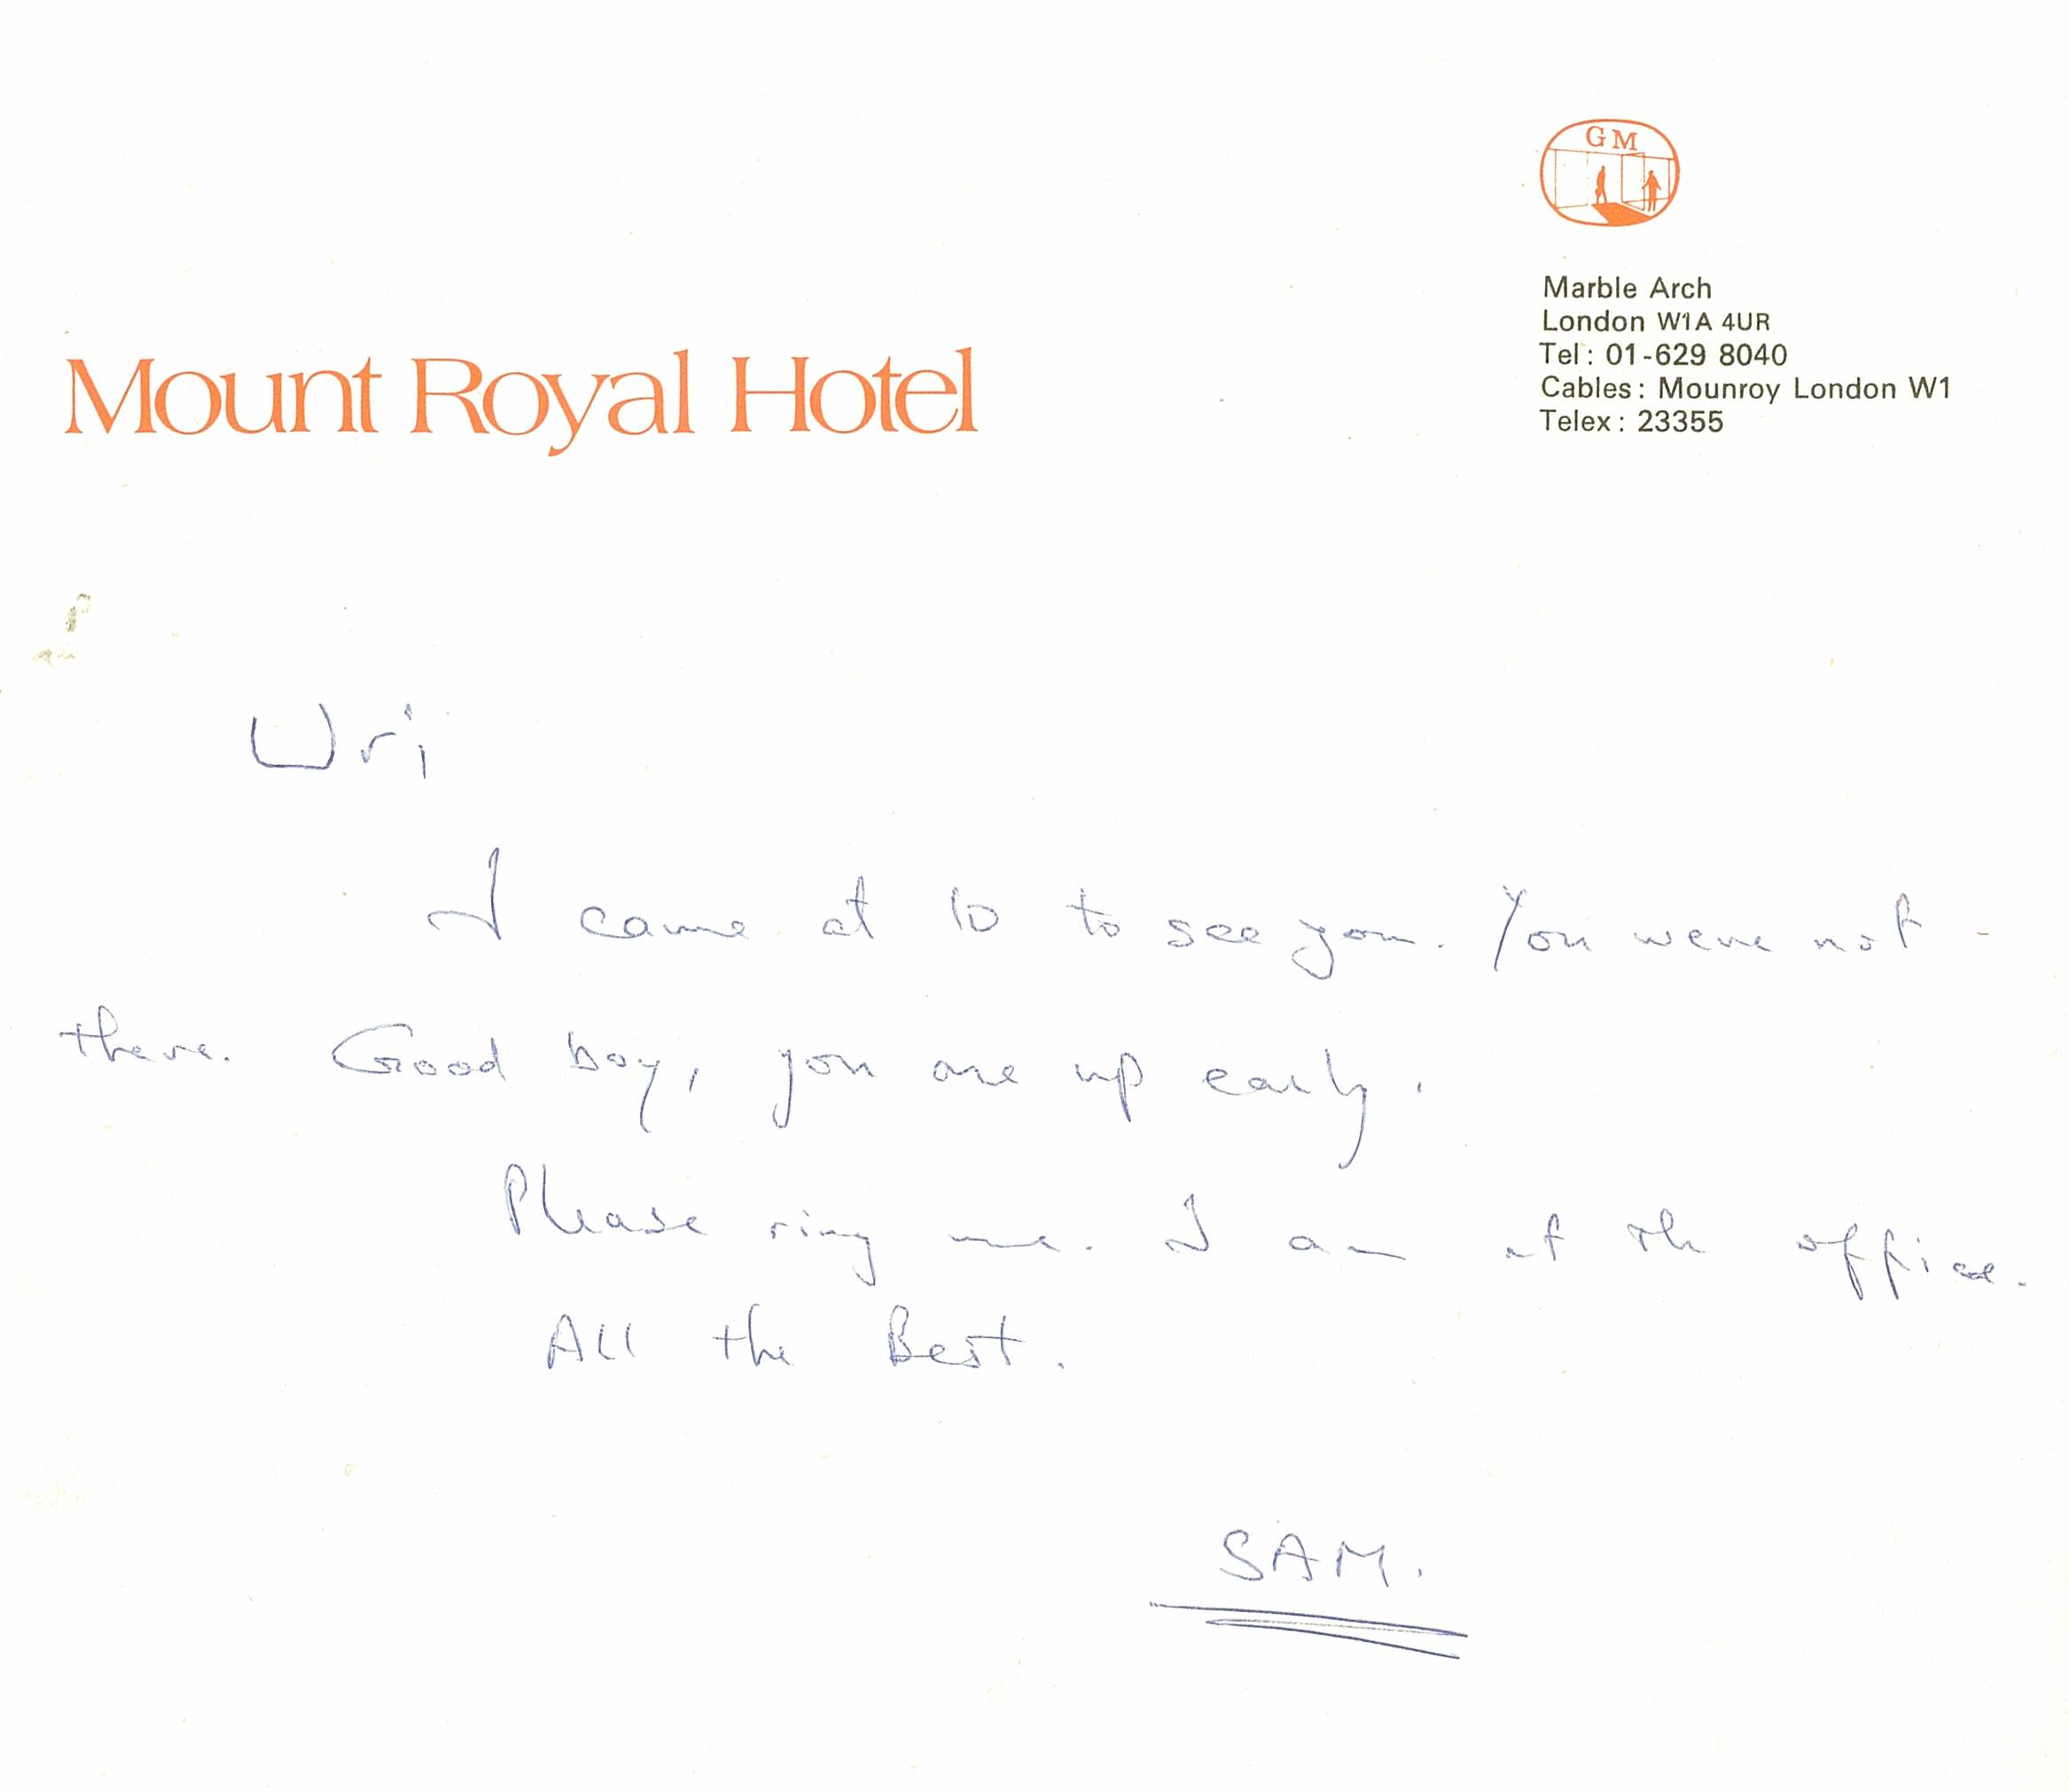 GM
Marble Arch
London W1A 4UR
Tel: 01-629 8040
Cables: Mounroy London W1
Telex: 23355
Mount Royal Hotel
Uri
I came at 10 to see you. You were not -
there. Good boy, you are up early.
Please ring me. I am at the office.
All the Best.
SAM.